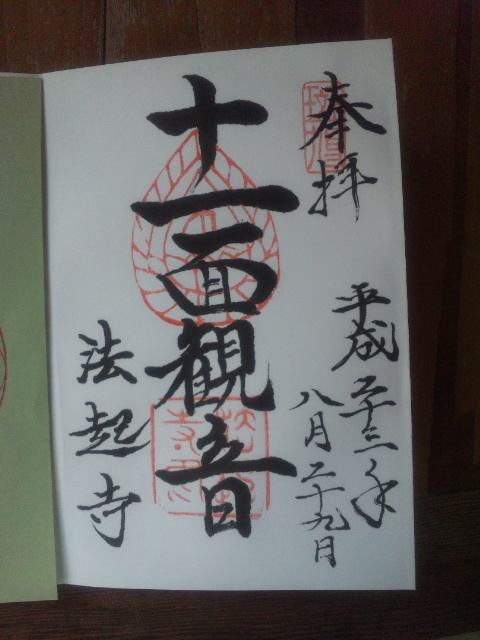 奉拝
平成二十三年
八月二十九日
十一面観音
法起寺